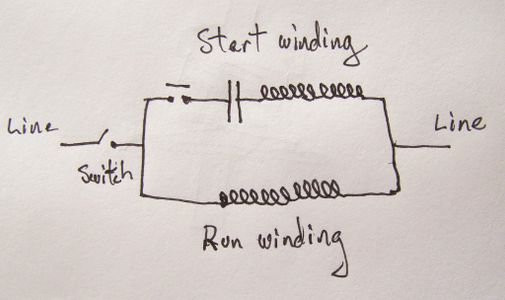 Start winding
Line
Line
Switch
Run winding